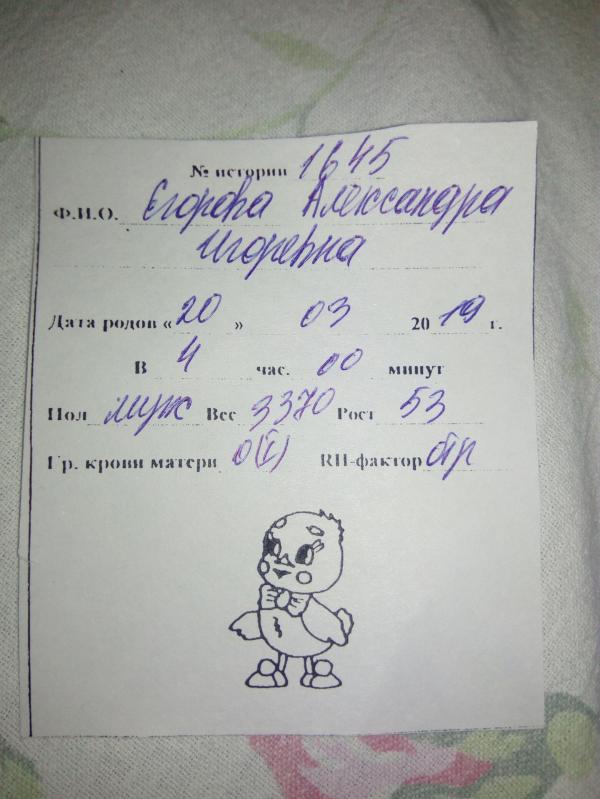 № истории 1645
Ф.И.О. Егорова Александра
Игоревна
Дата родов « 20 » 03 20 19 г.
В 4 час. 00 минут
Пол муж Вес 3370 Рост 53
Гр. крови матери O(I) RH-фактор отр